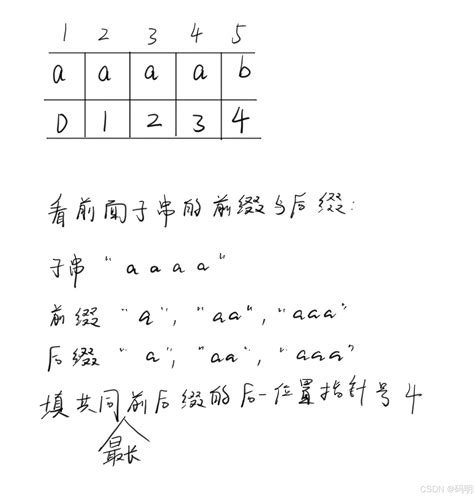 1 2 3 4 5
a a a a b
0 1 2 3 4
看前面子串的前缀与后缀:
子串 "aaaa"
前缀 "a", "aa", "aaa"
后缀 "a", "aa", "aaa"
填共同前后缀的后一位置指针号 4
最长
CSDN @码明